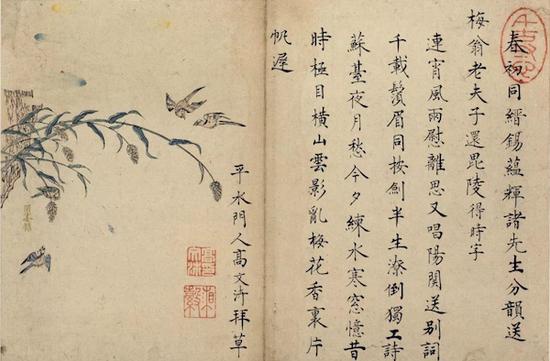 春初同緝錫蘊輝諸先生分韻送
梅翁老夫子還毘陵得時字
連宵風雨慰離思又唱陽關送別詞
千載鬚眉同按劍半生潦倒獨工詩
蘇臺夜月愁今夕練水寒窓憶昔
時極目橫山雲影亂梅花香裏片
帆遲
平水門人高文沜拜草